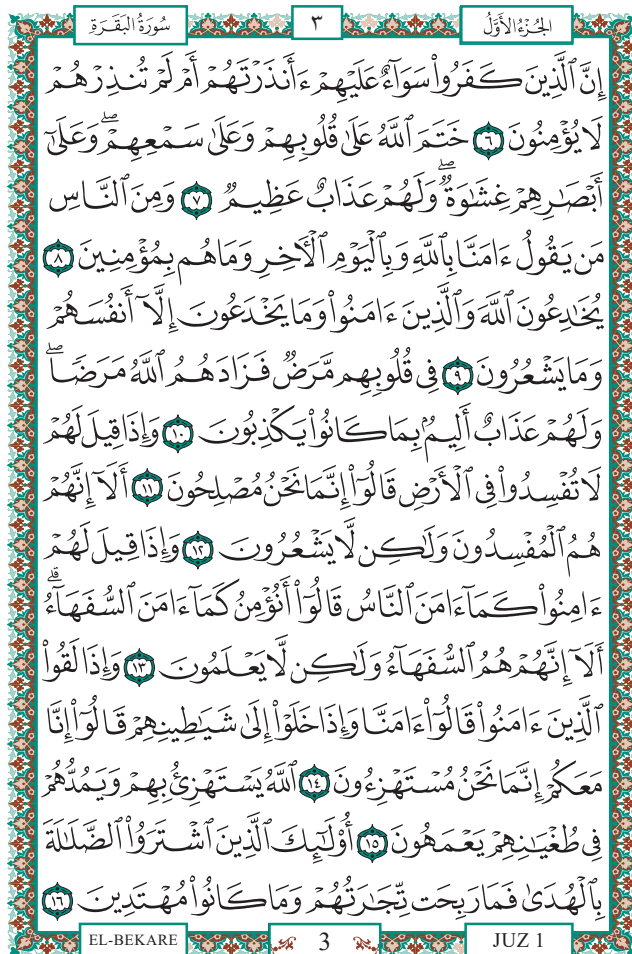 سُورَةُ البَقَرَةِ ٣ الجُزْءُ الأَوَّلُ
إِنَّ ٱلَّذِينَ كَفَرُوا۟ سَوَآءٌ عَلَيْهِمْ ءَأَنذَرْتَهُمْ أَمْ لَمْ تُنذِرْهُمْ
لَا يُؤْمِنُونَ ٦ خَتَمَ ٱللَّهُ عَلَىٰ قُلُوبِهِمْ وَعَلَىٰ سَمْعِهِمْ ۖ وَعَلَىٰٓ
أَبْصَـٰرِهِمْ غِشَـٰوَةٌ ۖ وَلَهُمْ عَذَابٌ عَظِيمٌ ٧ وَمِنَ ٱلنَّاسِ
مَن يَقُولُ ءَامَنَّا بِٱللَّهِ وَبِٱلْيَوْمِ ٱلْـَٔاخِرِ وَمَا هُم بِمُؤْمِنِينَ ٨
يُخَـٰدِعُونَ ٱللَّهَ وَٱلَّذِينَ ءَامَنُوا۟ وَمَا يَخْدَعُونَ إِلَّآ أَنفُسَهُمْ
وَمَا يَشْعُرُونَ ٩ فِى قُلُوبِهِم مَّرَضٌ فَزَادَهُمُ ٱللَّهُ مَرَضًا ۖ
وَلَهُمْ عَذَابٌ أَلِيمٌۢ بِمَا كَانُوا۟ يَكْذِبُونَ ١٠ وَإِذَا قِيلَ لَهُمْ
لَا تُفْسِدُوا۟ فِى ٱلْأَرْضِ قَالُوٓا۟ إِنَّمَا نَحْنُ مُصْلِحُونَ ١١ أَلَآ إِنَّهُمْ
هُمُ ٱلْمُفْسِدُونَ وَلَـٰكِن لَّا يَشْعُرُونَ ١٢ وَإِذَا قِيلَ لَهُمْ
ءَامِنُوا۟ كَمَآ ءَامَنَ ٱلنَّاسُ قَالُوٓا۟ أَنُؤْمِنُ كَمَآ ءَامَنَ ٱلسُّفَهَآءُ ۗ
أَلَآ إِنَّهُمْ هُمُ ٱلسُّفَهَآءُ وَلَـٰكِن لَّا يَعْلَمُونَ ١٣ وَإِذَا لَقُوا۟
ٱلَّذِينَ ءَامَنُوا۟ قَالُوٓا۟ ءَامَنَّا وَإِذَا خَلَوْا۟ إِلَىٰ شَيَـٰطِينِهِمْ قَالُوٓا۟ إِنَّا
مَعَكُمْ إِنَّمَا نَحْنُ مُسْتَهْزِءُونَ ١٤ ٱللَّهُ يَسْتَهْزِئُ بِهِمْ وَيَمُدُّهُمْ
فِى طُغْيَـٰنِهِمْ يَعْمَهُونَ ١٥ أُو۟لَـٰٓئِكَ ٱلَّذِينَ ٱشْتَرَوُا۟ ٱلضَّلَـٰلَةَ
بِٱلْهُدَىٰ فَمَا رَبِحَت تِّجَـٰرَتُهُمْ وَمَا كَانُوا۟ مُهْتَدِينَ ١٦
EL-BEKARE 3 JUZ 1